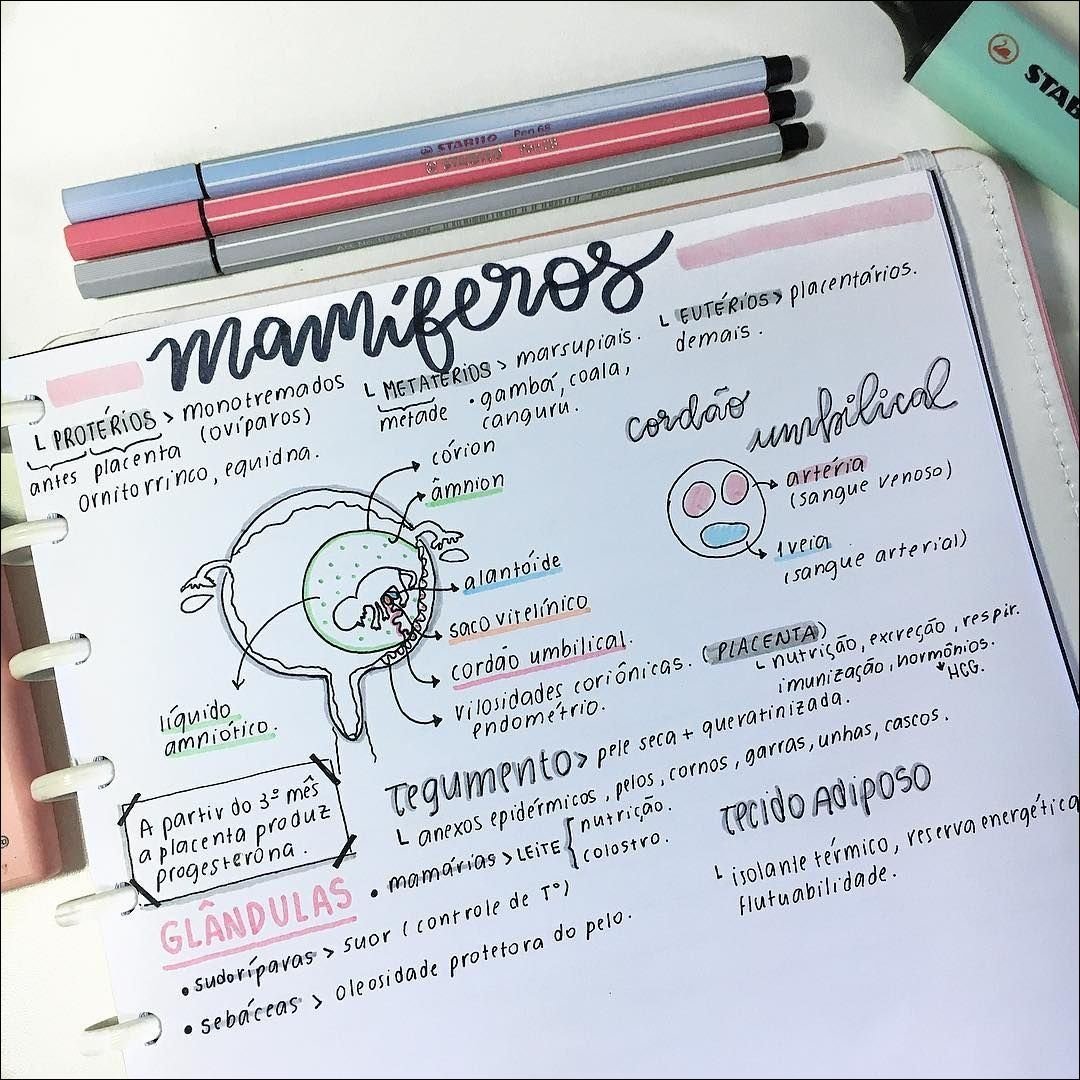 STABILO Pen 68
STAB
mamíferos
└ PROTÉRIOS > monotremados
antes placenta (ovíparos)
ornitorrinco, equidna.
└ METATÉRIOS > marsupiais.
metade • gambá, coala,
canguru.
└ EUTÉRIOS > placentários.
demais.
cordão
umbilical
artéria
(sangue venoso)
1 veia
(sangue arterial)
córion
âmnion
alantóide
saco vitelínico
cordão umbilical.
vilosidades coriônicas. (PLACENTA)
endométrio.
└ nutrição, excreção, respir.
imunização, hormônios.
HCG.
líquido
amniótico.
A partir do 3º mês
a placenta produz
progesterona.
Tegumento > pele seca + queratinizada.
└ anexos epidérmicos, pelos, cornos, garras, unhas, cascos.
GLÂNDULAS
• mamárias > LEITE { nutrição.
colostro.
• sudoríparas > suor (controle de Tº)
• sebáceas > oleosidade protetora do pelo.
Tecido Adiposo
└ isolante térmico, reserva energética
flutuabilidade.